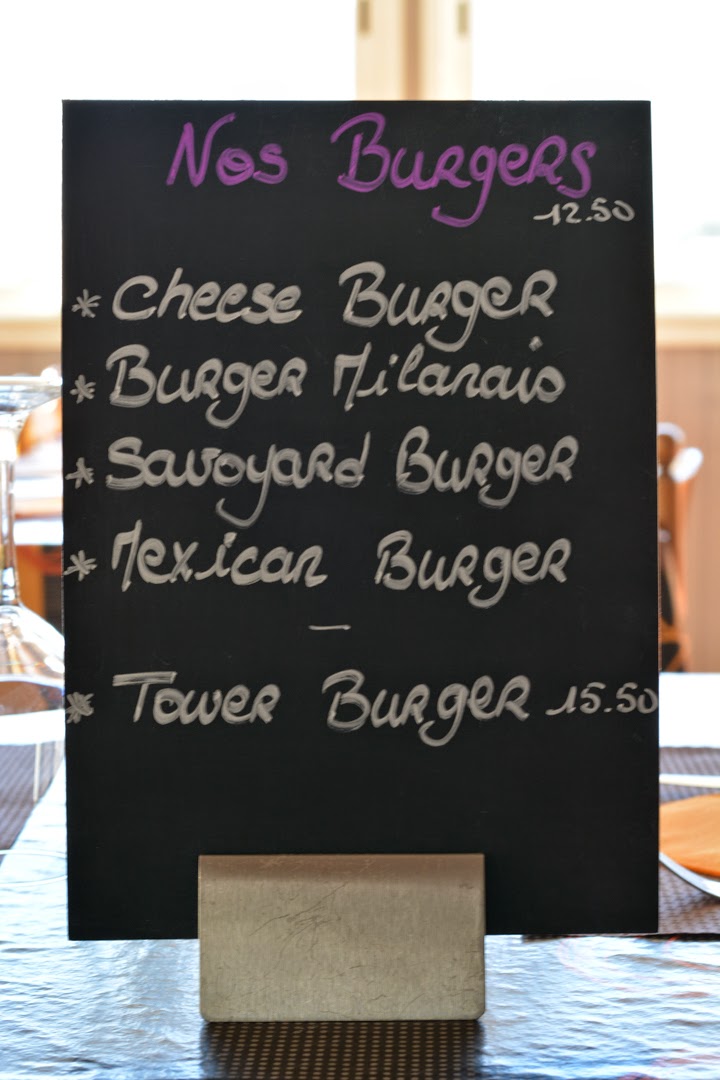 Nos Burgers
12.50
* Cheese Burger
* Burger Milanais
* Savoyard Burger
* Mexican Burger
—
* Tower Burger 15.50